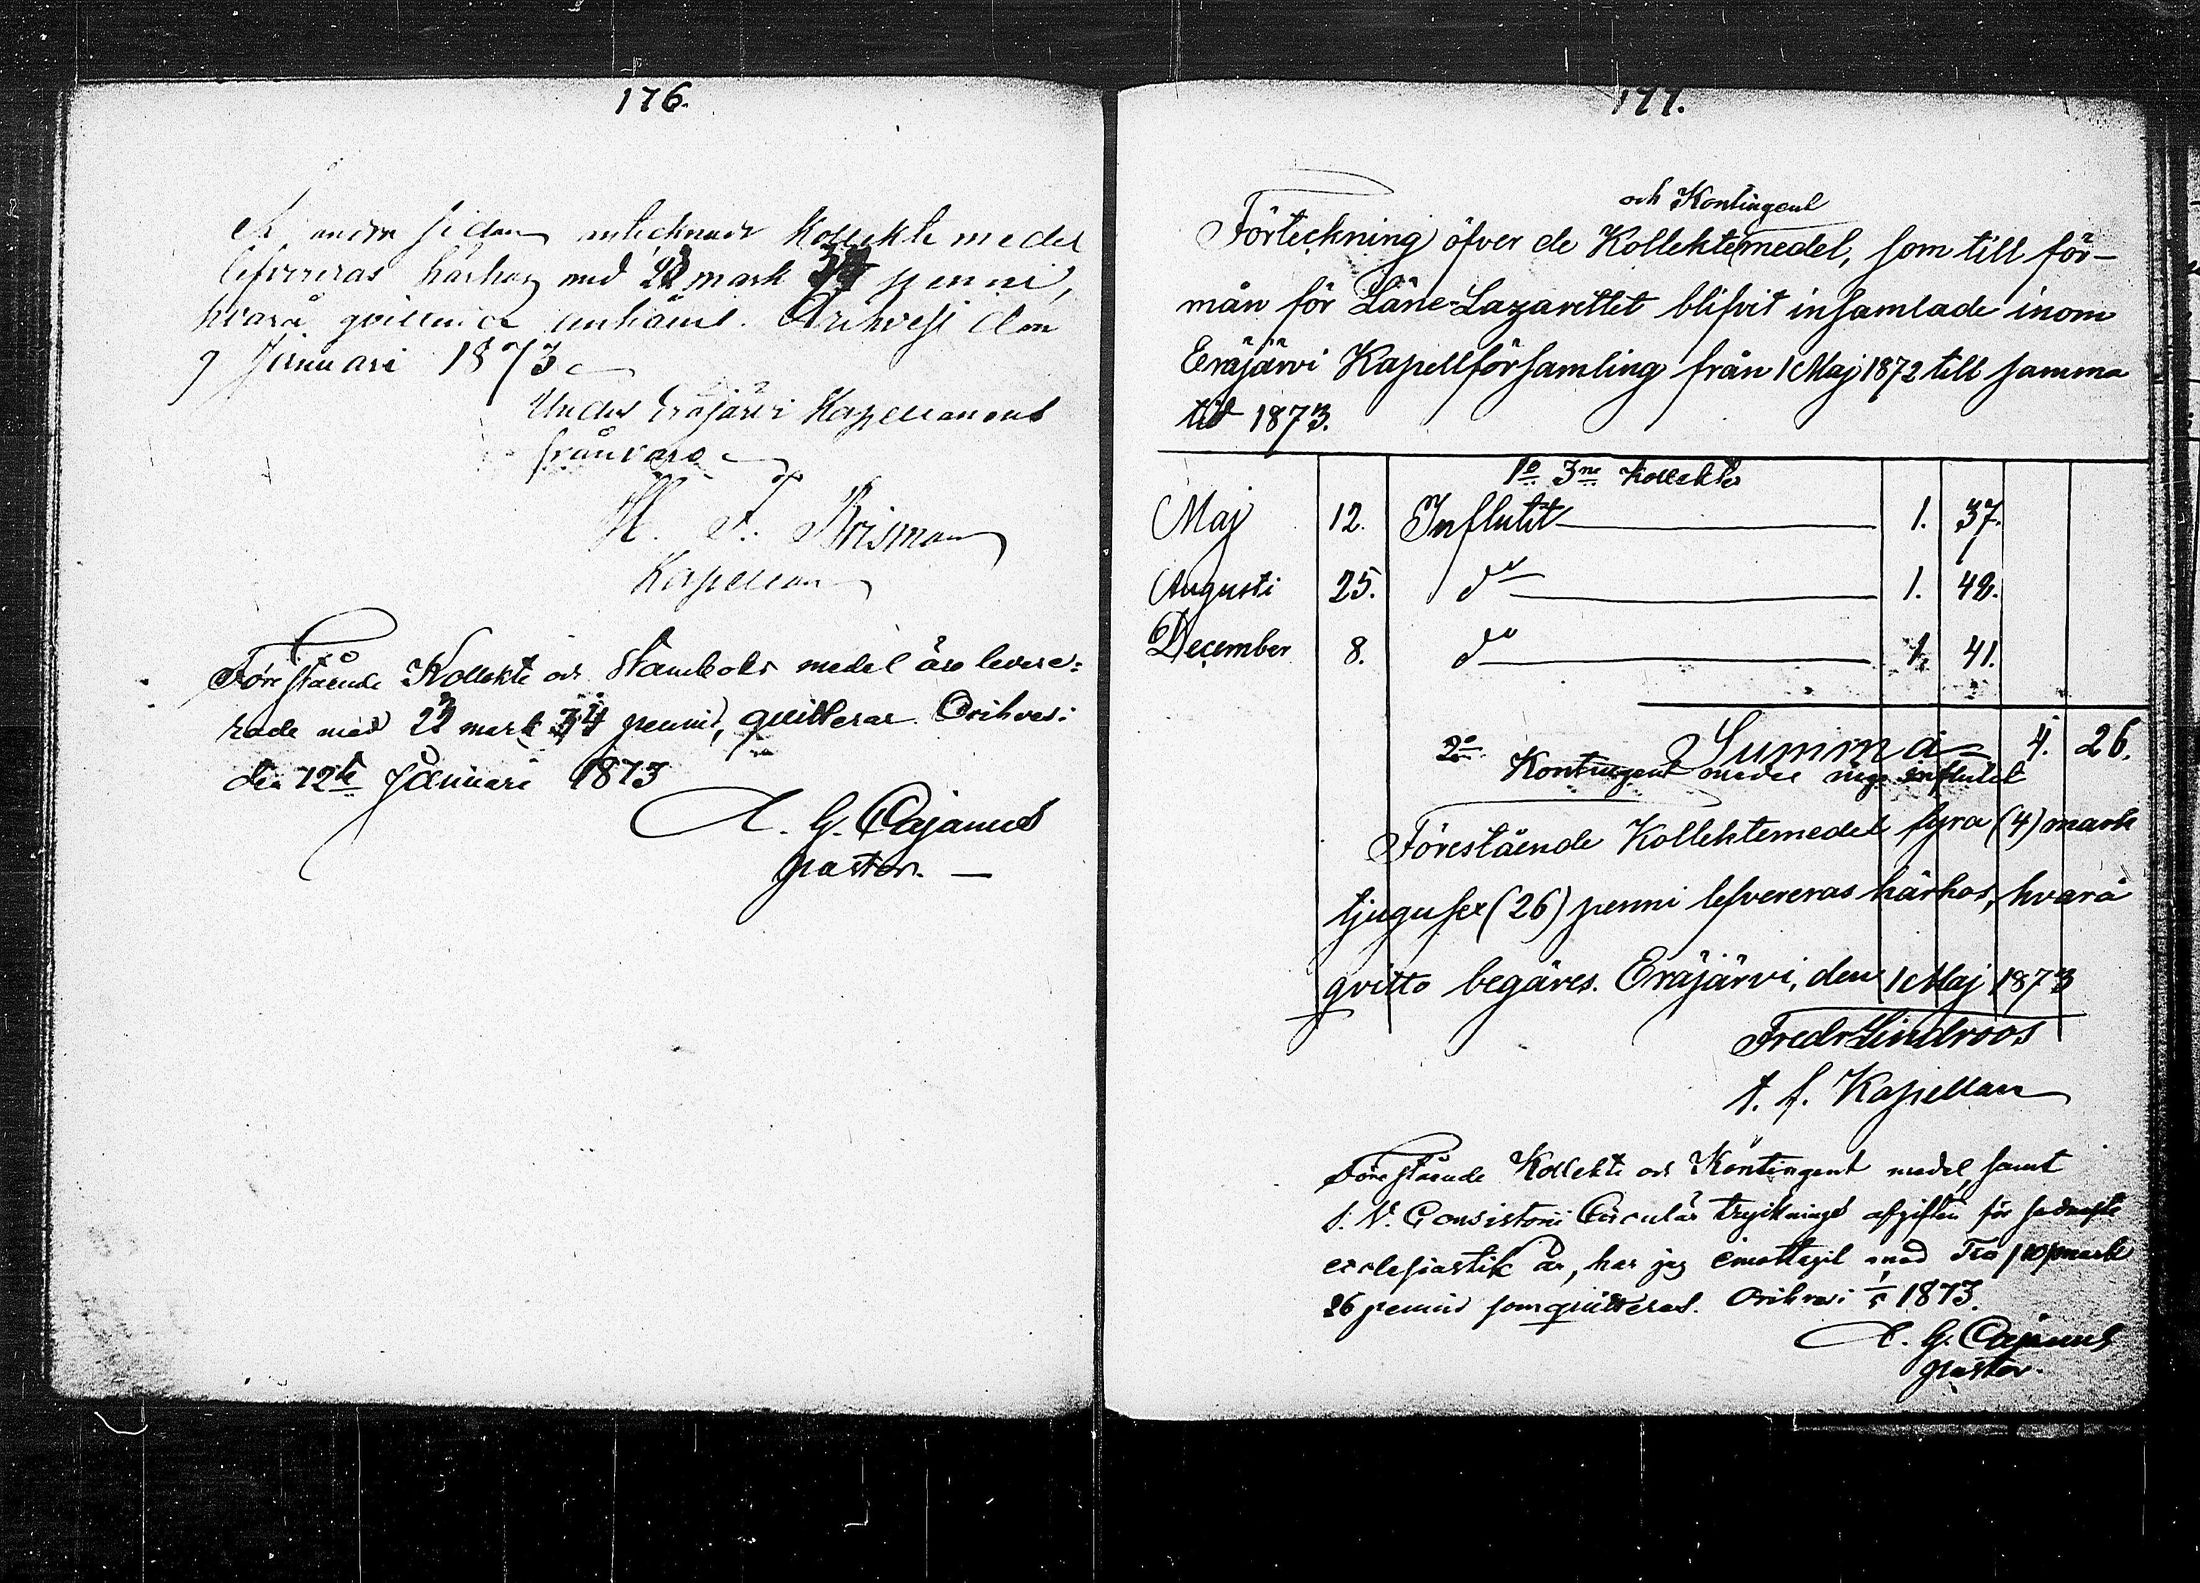 176.
andra sidan antecknade Kollekte medel
lefvereras härhos med mark penni,
hvarå anhålles. Orihvesi den
7 Januari 1873
Under Eräjärvi Kapellanens
frånvaro
H. F. Brisman
Kapellan
Förestående Kollekt och Stamboks medel äro levere-
rade med 22 mark 34 penni, quitterar Orihvesi
den 12te Januari 1873
A. G. Cajanus
pastor. —
177.
och Kontingent
Förteckning öfver de Kollektemedel, som till för-
mån för Läne-Lazarettet blifvit insamlade inom
Eräjärvi Kapellförsamling från 1 Maj 1872 till samma
tid 1873.
1o 3ne Kollekter
Maj 12. Influtit 1. 37.
Augusti 25. do 1. 48.
December 8. do 1. 41.
Summa 4. 26.
2o Kontingent medel inga influtit
Förestående Kollektemedel fyra (4) mark
tjugusex (26) penni lefvereras härhos, hvarå
qvitto begäres. Eräjärvi, den 1 Maj 1873
Fredr Lindroos
t. f. Kapellan
Förestående Kollekt och Kontingent medel, samt
s. V. Consistorii Circulär trycknings afgiften för sednaste
ecclesiastik år, har jag emottagit med Tio (10) mark
26 penni som quitteras. Orihvesi 1/5 1873.
A. G. Cajanus
pastor.